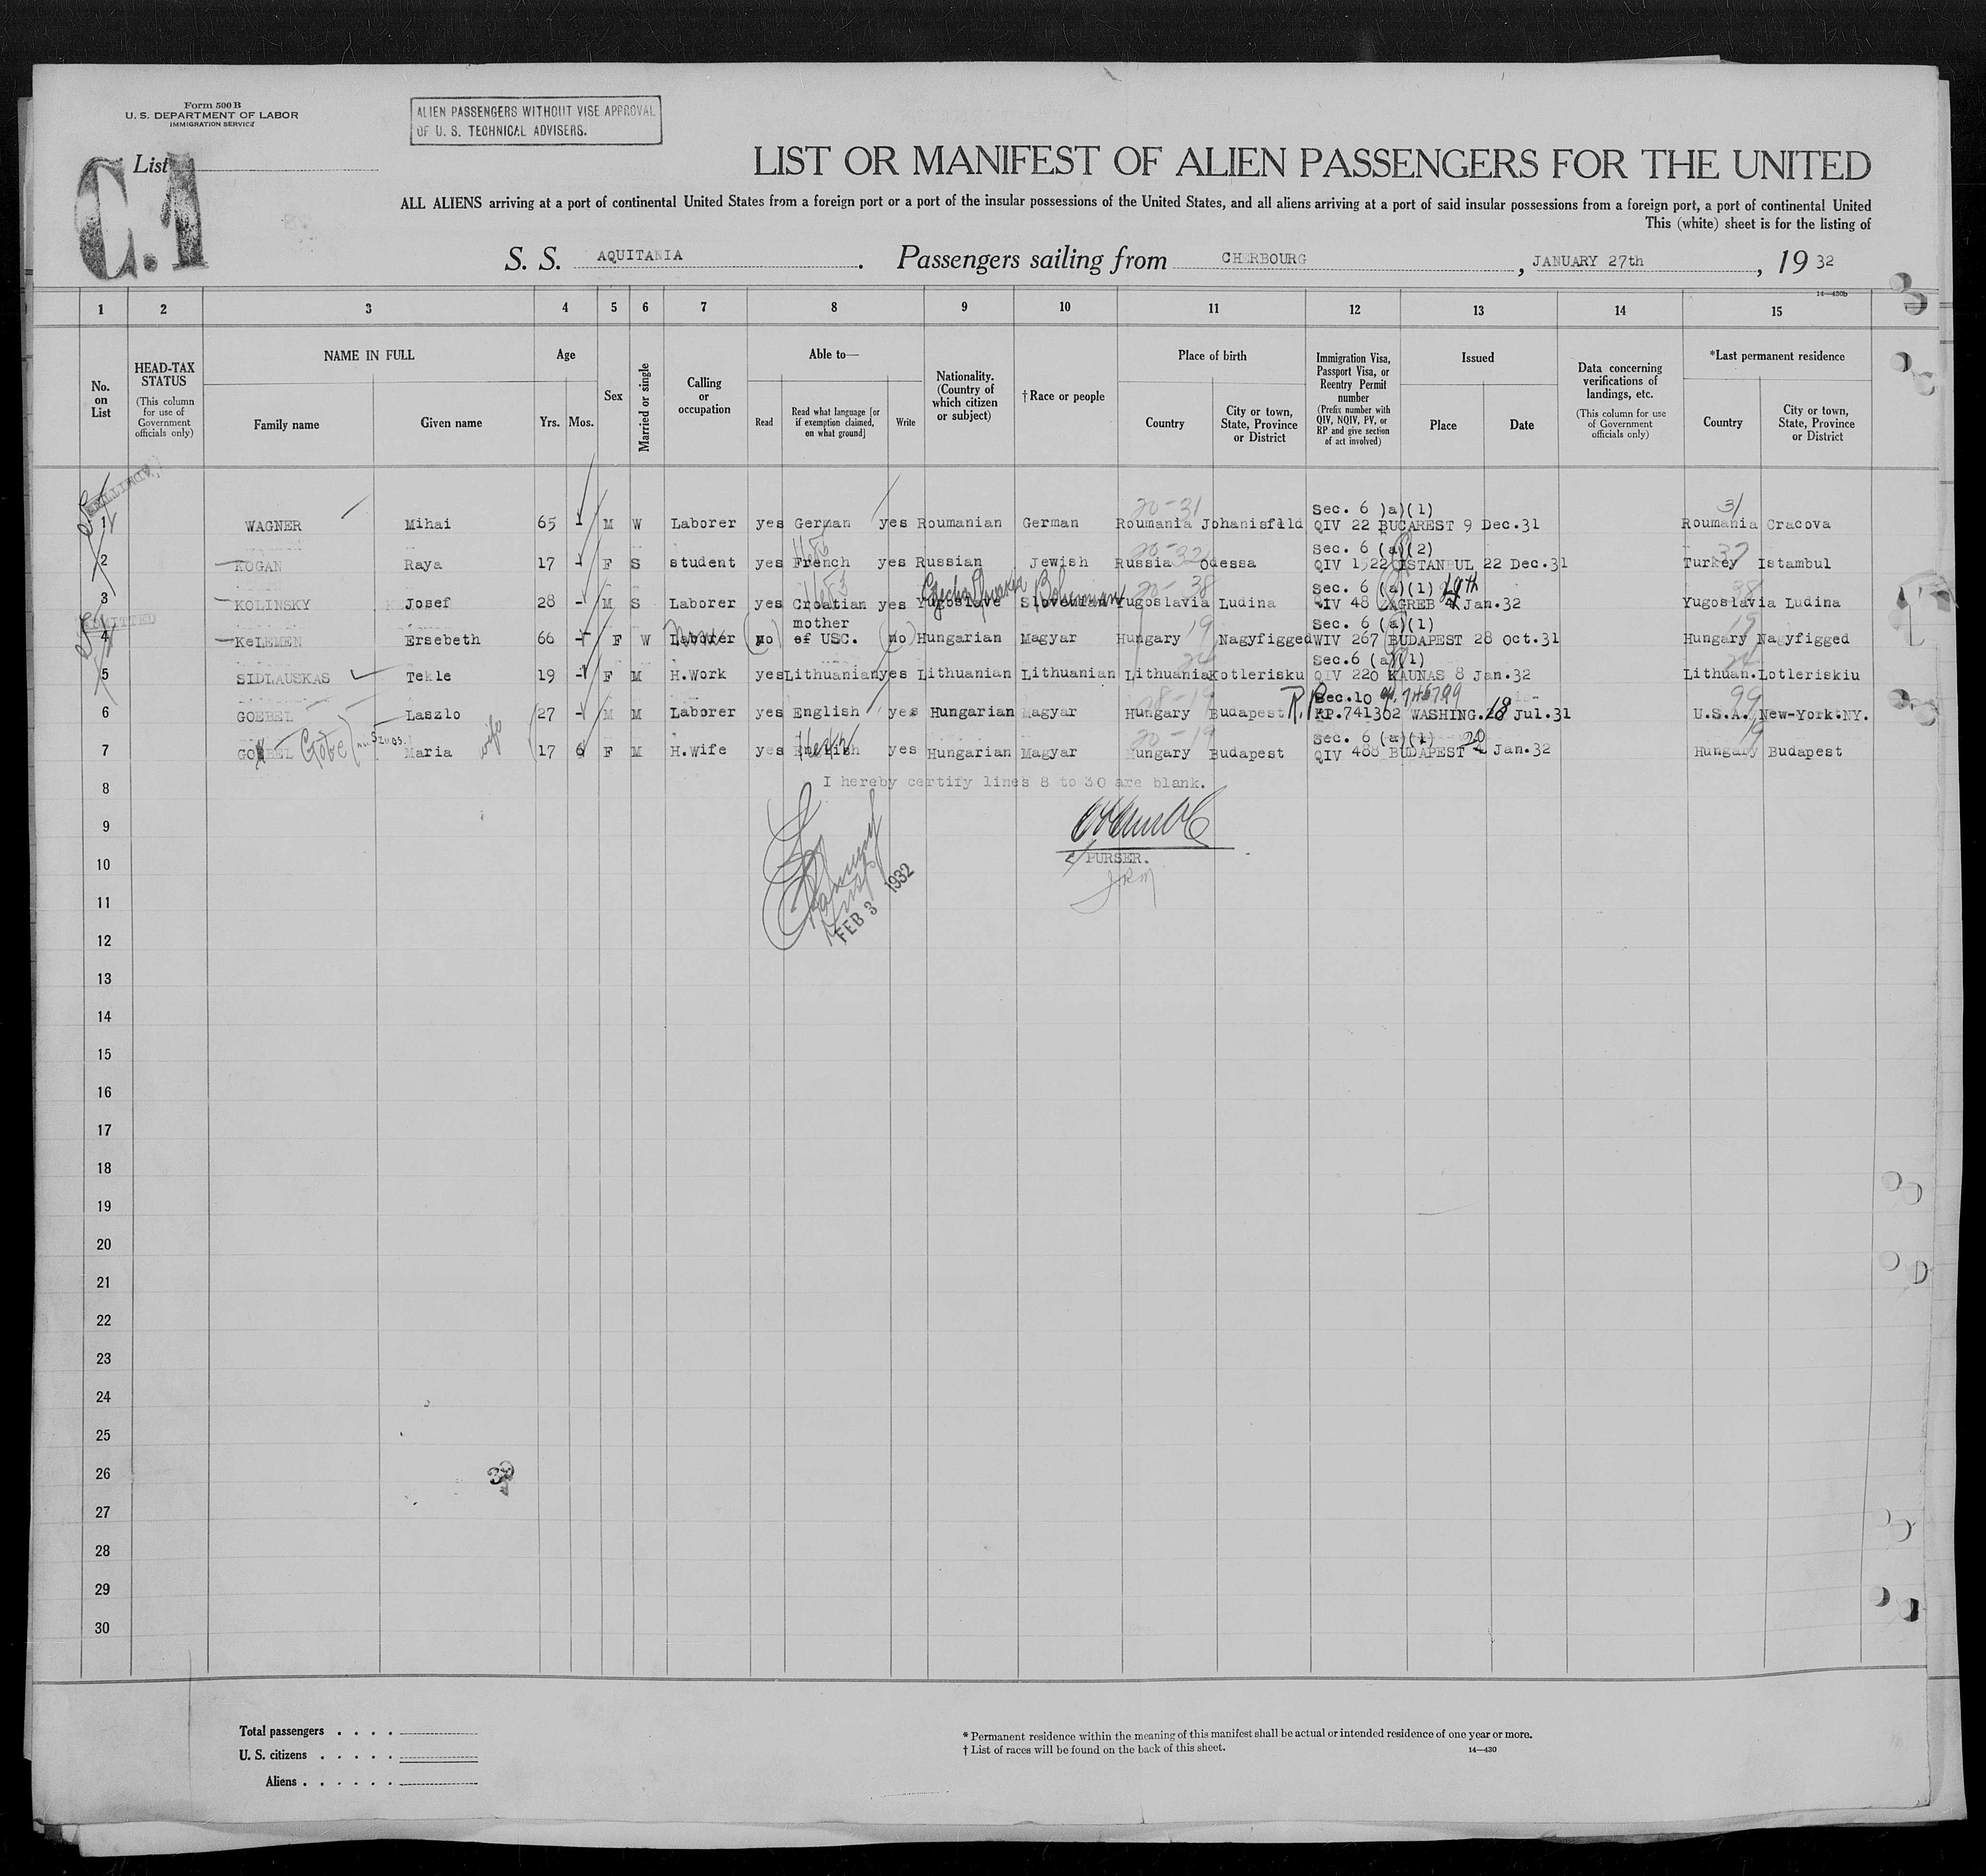 Form 500 B
U. S. DEPARTMENT OF LABOR
IMMIGRATION SERVICE
ALIEN PASSENGERS WITHOUT VISE APPROVAL
OF U. S. TECHNICAL ADVISERS.
List
C.1
LIST OR MANIFEST OF ALIEN PASSENGERS FOR THE UNITED
ALL ALIENS arriving at a port of continental United States from a foreign port or a port of the insular possessions of the United States, and all aliens arriving at a port of said insular possessions from a foreign port, a port of continental United
This (white) sheet is for the listing of
S. S. AQUITANIA. Passengers sailing from CHERBOURG, JANUARY 27th, 19 32
14—430b
1 2 3 4 5 6 7 8 9 10 11 12 13 14 15
No. on List
HEAD-TAX STATUS (This column for use of Government officials only)
NAME IN FULL
Family name Given name
Age
Yrs. Mos.
Sex
Married or single
Calling or occupation
Able to—
Read Read what language [or if exemption claimed, on what ground] Write
Nationality. (Country of which citizen or subject)
† Race or people
Place of birth
Country City or town, State, Province or District
Immigration Visa, Passport Visa, or Reentry Permit number (Prefix number with QIV, NQIV, PV, or RP and give section of act involved)
Issued
Place Date
Data concerning verifications of landings, etc. (This column for use of Government officials only)
*Last permanent residence
Country City or town, State, Province or District
ADMITTED
20-31 Sec. 6 )a)(1) 31
1 WAGNER Mihai 65 - M W Laborer yes German yes Roumanian German Roumania Johanisfeld QIV 22 BUCAREST 9 Dec.31 Roumania Cracova
20-32 Sec. 6 (a)(2) 37
2 KOGAN Raya 17 - F S student yes French yes Russian Jewish Russia Odessa QIV 1522 ISTANBUL 22 Dec.31 Turkey Istambul
Czecho Slovakia Bohemian 20-38 Sec. 6 (a)(1) 38
3 KOLINSKY Josef 28 - M S Laborer yes Croatian yes Yugoslave Slovenian Yugoslavia Ludina QIV 48 ZAGREB Jan.32 Yugoslavia Ludina
ADMITTED mother 19 Sec. 6 (a)(1) 19
4 KeLEMEN Ersebeth 66 - F W Laborer None no of USC. no Hungarian Magyar Hungary Nagyfigged WIV 267 BUDAPEST 28 Oct.31 Hungary Nagyfigged
24 Sec.6 (a)(1) 24
5 SIDLAUSKAS Tekle 19 - F M H.Work yes Lithuanian yes Lithuanian Lithuanian Lithuania Kotlerisku QIV 220 KAUNAS 8 Jan.32 Lithuan. Lotleriskiu
08-19 R.P. Sec.10 99
6 GOEBEL Laszlo 27 - M M Laborer yes English yes Hungarian Magyar Hungary Budapest RP.741302 WASHING. 18 Jul.31 U.S.A. New-York NY.
20-19 Sec. 6 (a)(1) 20 19
7 GOEBEL Maria wife 17 6 F M H.Wife yes English yes Hungarian Magyar Hungary Budapest QIV 488 BUDAPEST Jan.32 Hungary Budapest
8 I hereby certify lines 8 to 30 are blank.
9
10 PURSER.
11 FEB 3 1932
12
13
14
15
16
17
18
19
20
21
22
23
24
25
26
27
28
29
30
Total passengers . . . .
U. S. citizens . . . . .
Aliens . . . . . .
* Permanent residence within the meaning of this manifest shall be actual or intended residence of one year or more.
† List of races will be found on the back of this sheet.
14—430